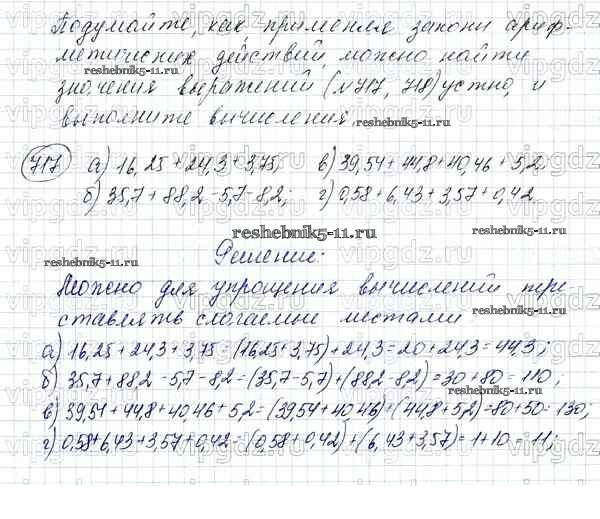 Подумайте, как, применяя законы ариф-
метических действий, можно найти
reshebnik5-11.ru
значения выражений (№717, 718) устно, и
выполните вычисления.
reshebnik5-11.ru
717 а) 16,25 + 24,3 + 3,75; в) 39,54 + 44,8 + 40,46 + 5,2
б) 35,7 + 88,2 - 5,7 - 8,2; г) 0,58 + 6,43 + 3,57 + 0,42.
reshebnik5-11.ru
Решение:
Можно для упрощения вычислений пере-
ставлять слагаемые местами
reshebnik5-11.ru
а) 16,25 + 24,3 + 3,75 = (16,25 + 3,75) + 24,3 = 20 + 24,3 = 44,3;
б) 35,7 + 88,2 - 5,7 - 8,2 = (35,7 - 5,7) + (88,2 - 8,2) = 30 + 80 = 110;
в) 39,54 + 44,8 + 40,46 + 5,2 = (39,54 + 40,46) + (44,8 + 5,2) = 80 + 50 = 130;
г) 0,58 + 6,43 + 3,57 + 0,42 = (0,58 + 0,42) + (6,43 + 3,57) = 1 + 10 = 11;
reshebnik5-11.ru